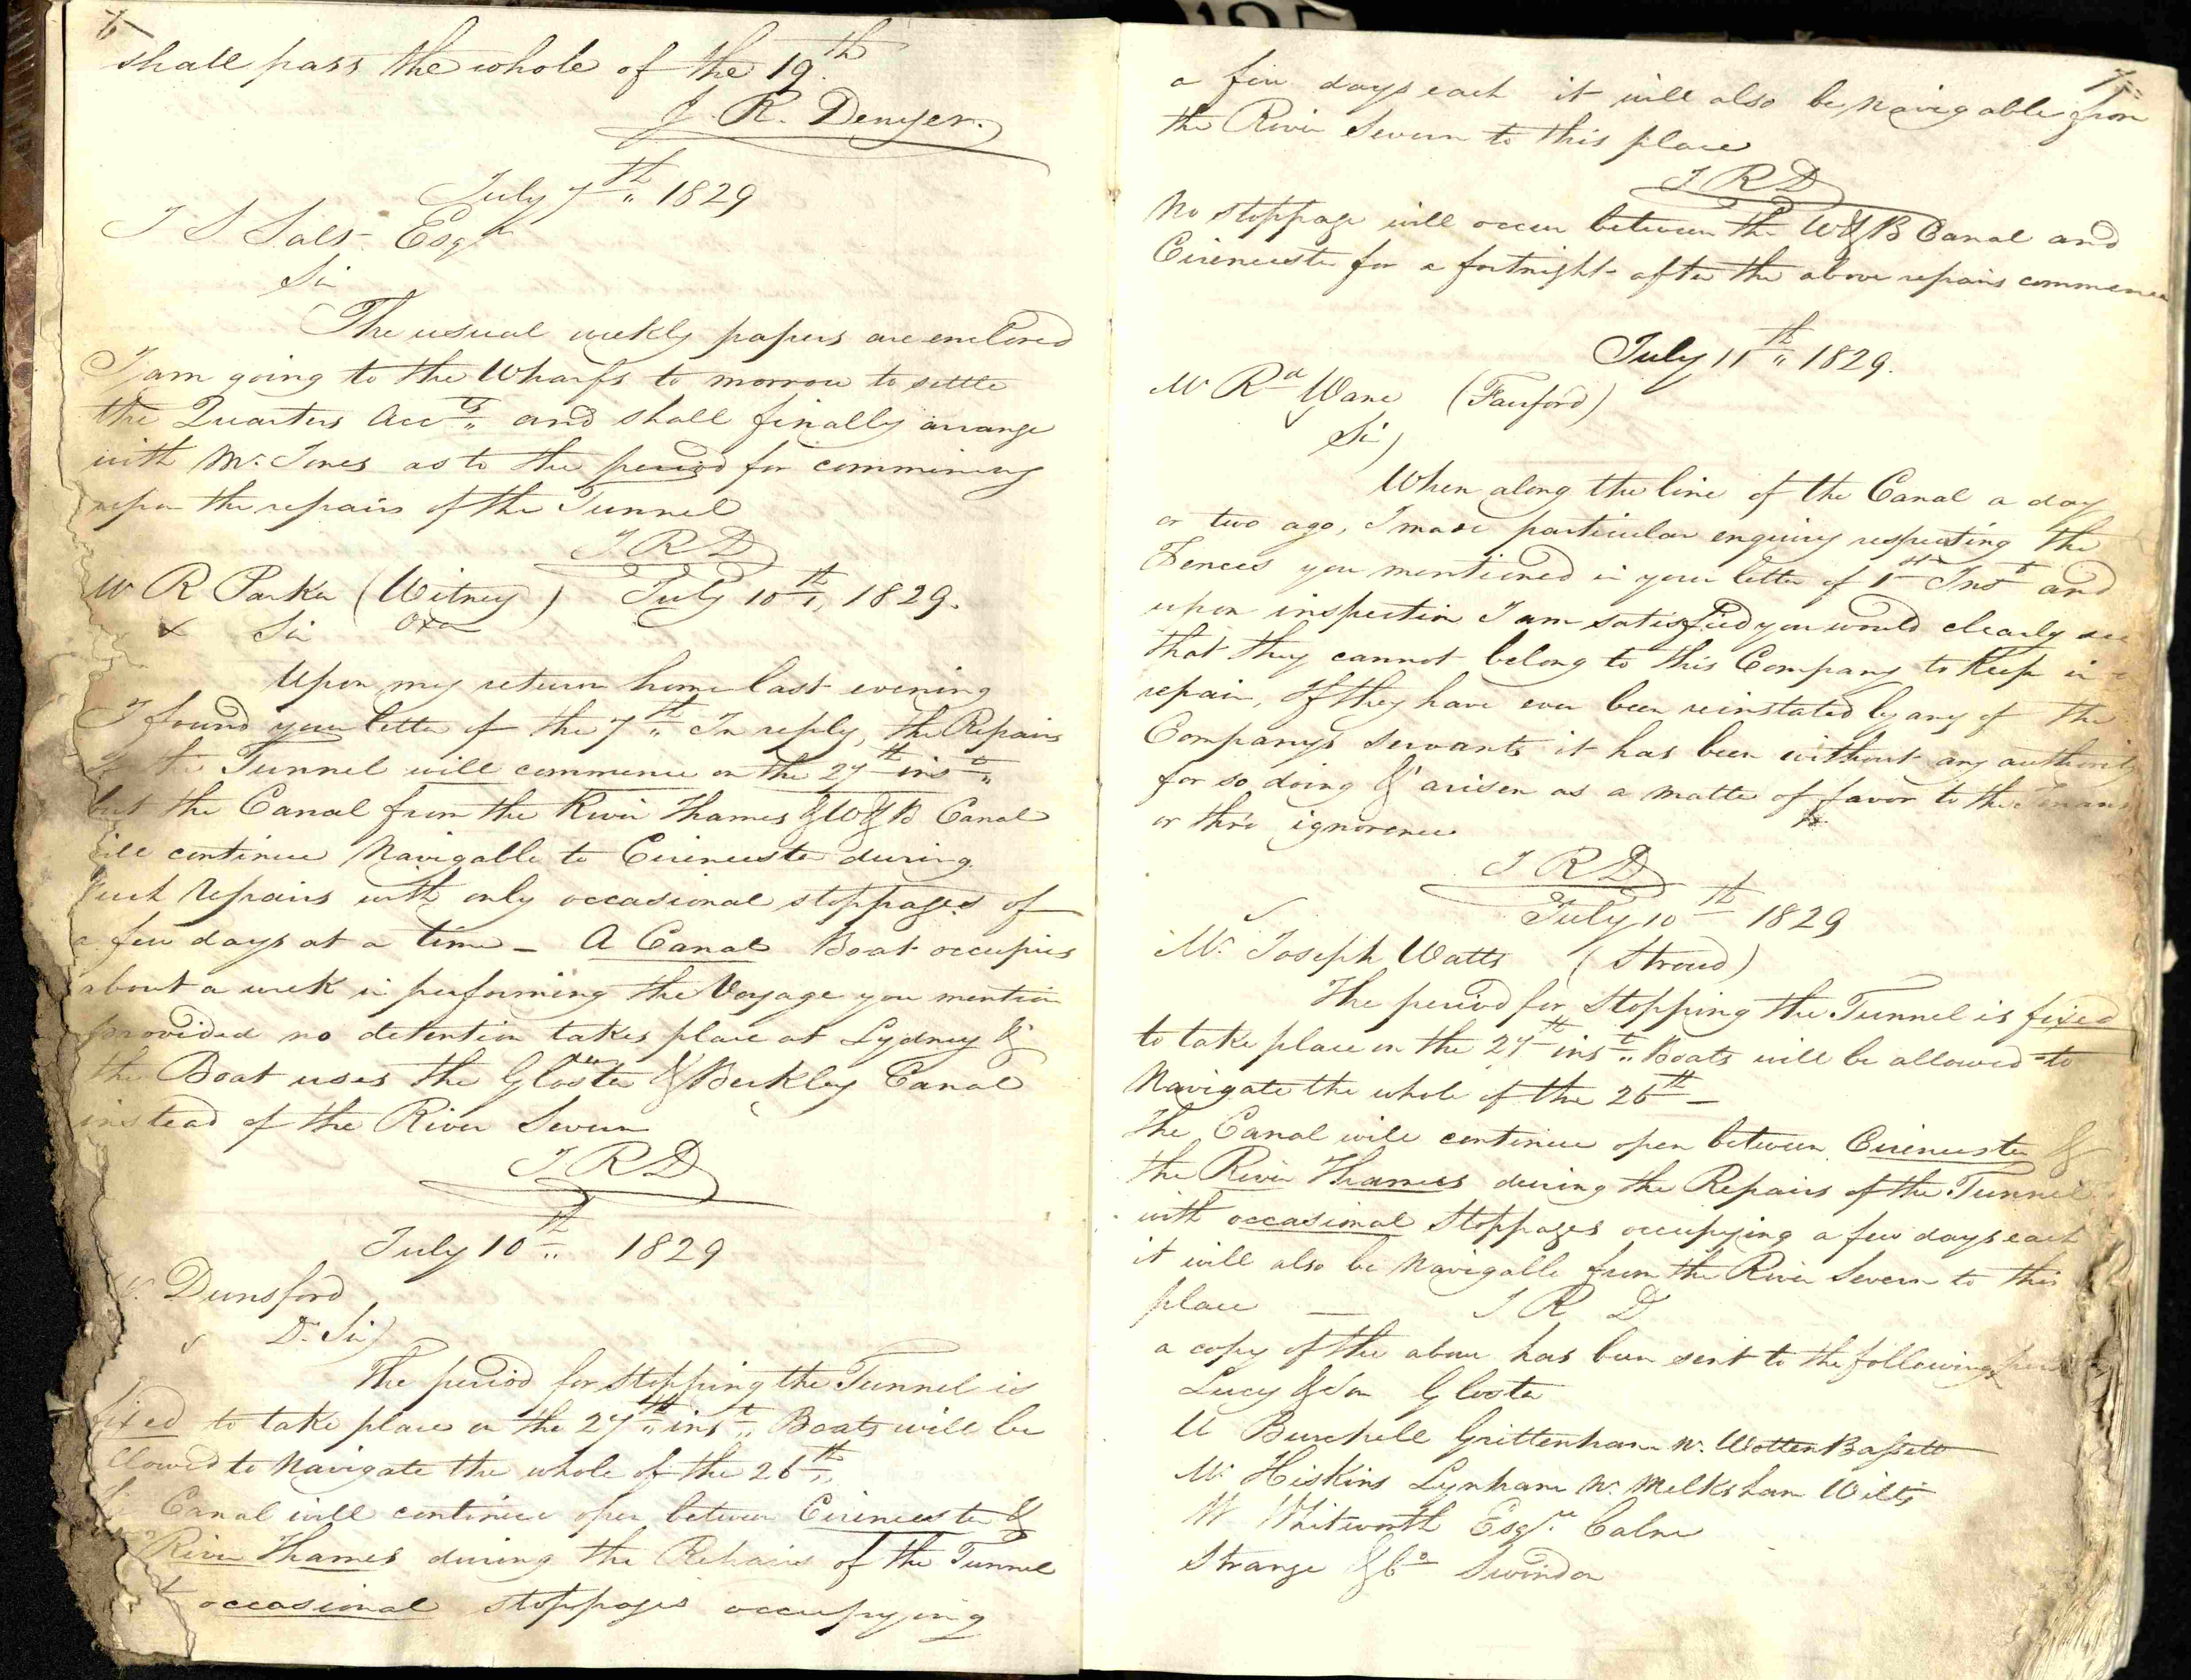 6
shall pass the whole of the 19th
J. R. Denyer.
July 7th 1829
J S Salt Esqr
Sir
The usual weekly papers are enclosed
I am going to the Wharfs to morrow to settle
the Quarters Accts and shall finally arrange
with Mr. Jones as to the period for commencing
upon the repairs of the Tunnel
J R D
Mr R Parker (Witney) July 10th 1829.
x Sir Oxon
Upon my return home last evening
I found your letter of the 7th In reply, the Repairs
the Tunnel will commence on the 27th inst
but the Canal from the River Thames & W & B Canal
will continue Navigable to Cirencester during
such repairs with only occasional stoppages of
a few days at a time - A Canal Boat occupies
about a week in performing the Voyage you mention
provided no detention takes place at Lydney &
the Boat uses the Gloster & Berkley Canal
instead of the River Severn
J R D
July 10th 1829
Dunsford
Dr Sir
The period for stopping the Tunnel is
fixed to take place on the 27th inst Boats will be
allowed to Navigate the whole of the 26th
Canal will continue open between Cirencester &
River Thames during the Repairs of the Tunnel
occasional stoppages occupying
7
a few days each it will also be navigable from
the River Severn to this place
J R D
No stoppage will occur between the W & B Canal and
Cirencester for a fortnight after the above repairs commence
July 11th 1829.
Mr Rd Wane (Fairford)
Sir
When along the line of the Canal a day
or two ago, I made particular enquiry respecting the
Fences you mentioned in your letter of 1st Inst and
upon inspection I am satisfied you would clearly see
that they cannot belong to this Company to keep in
repair, If they have ever been reinstated by any of the
Companys servants it has been without any authority
for so doing & arisen as a matter of favor to the Tenant
or thro ignorence
J R D
July 10th 1829
Mr. Joseph Watts (Stroud)
The period for Stopping the Tunnel is fixed
to take place on the 27th inst Boats will be allowed to
Navigate the whole of the 26th -
The Canal will continue open between Cirencester &
the River Thames during the Repairs of the Tunnel
with occasional Stoppages occupying a few days each
it will also be Navigable from the River Severn to this
place - J R D
a copy of the above has been sent to the following
Lucy & Son Gloster
Burchell Grittenham Nr. Wotten Bassett
Mr Hiskins Lynham Nr. Melksham Wilts
Whitworth Esqre Calne
Strange & Co Swindon